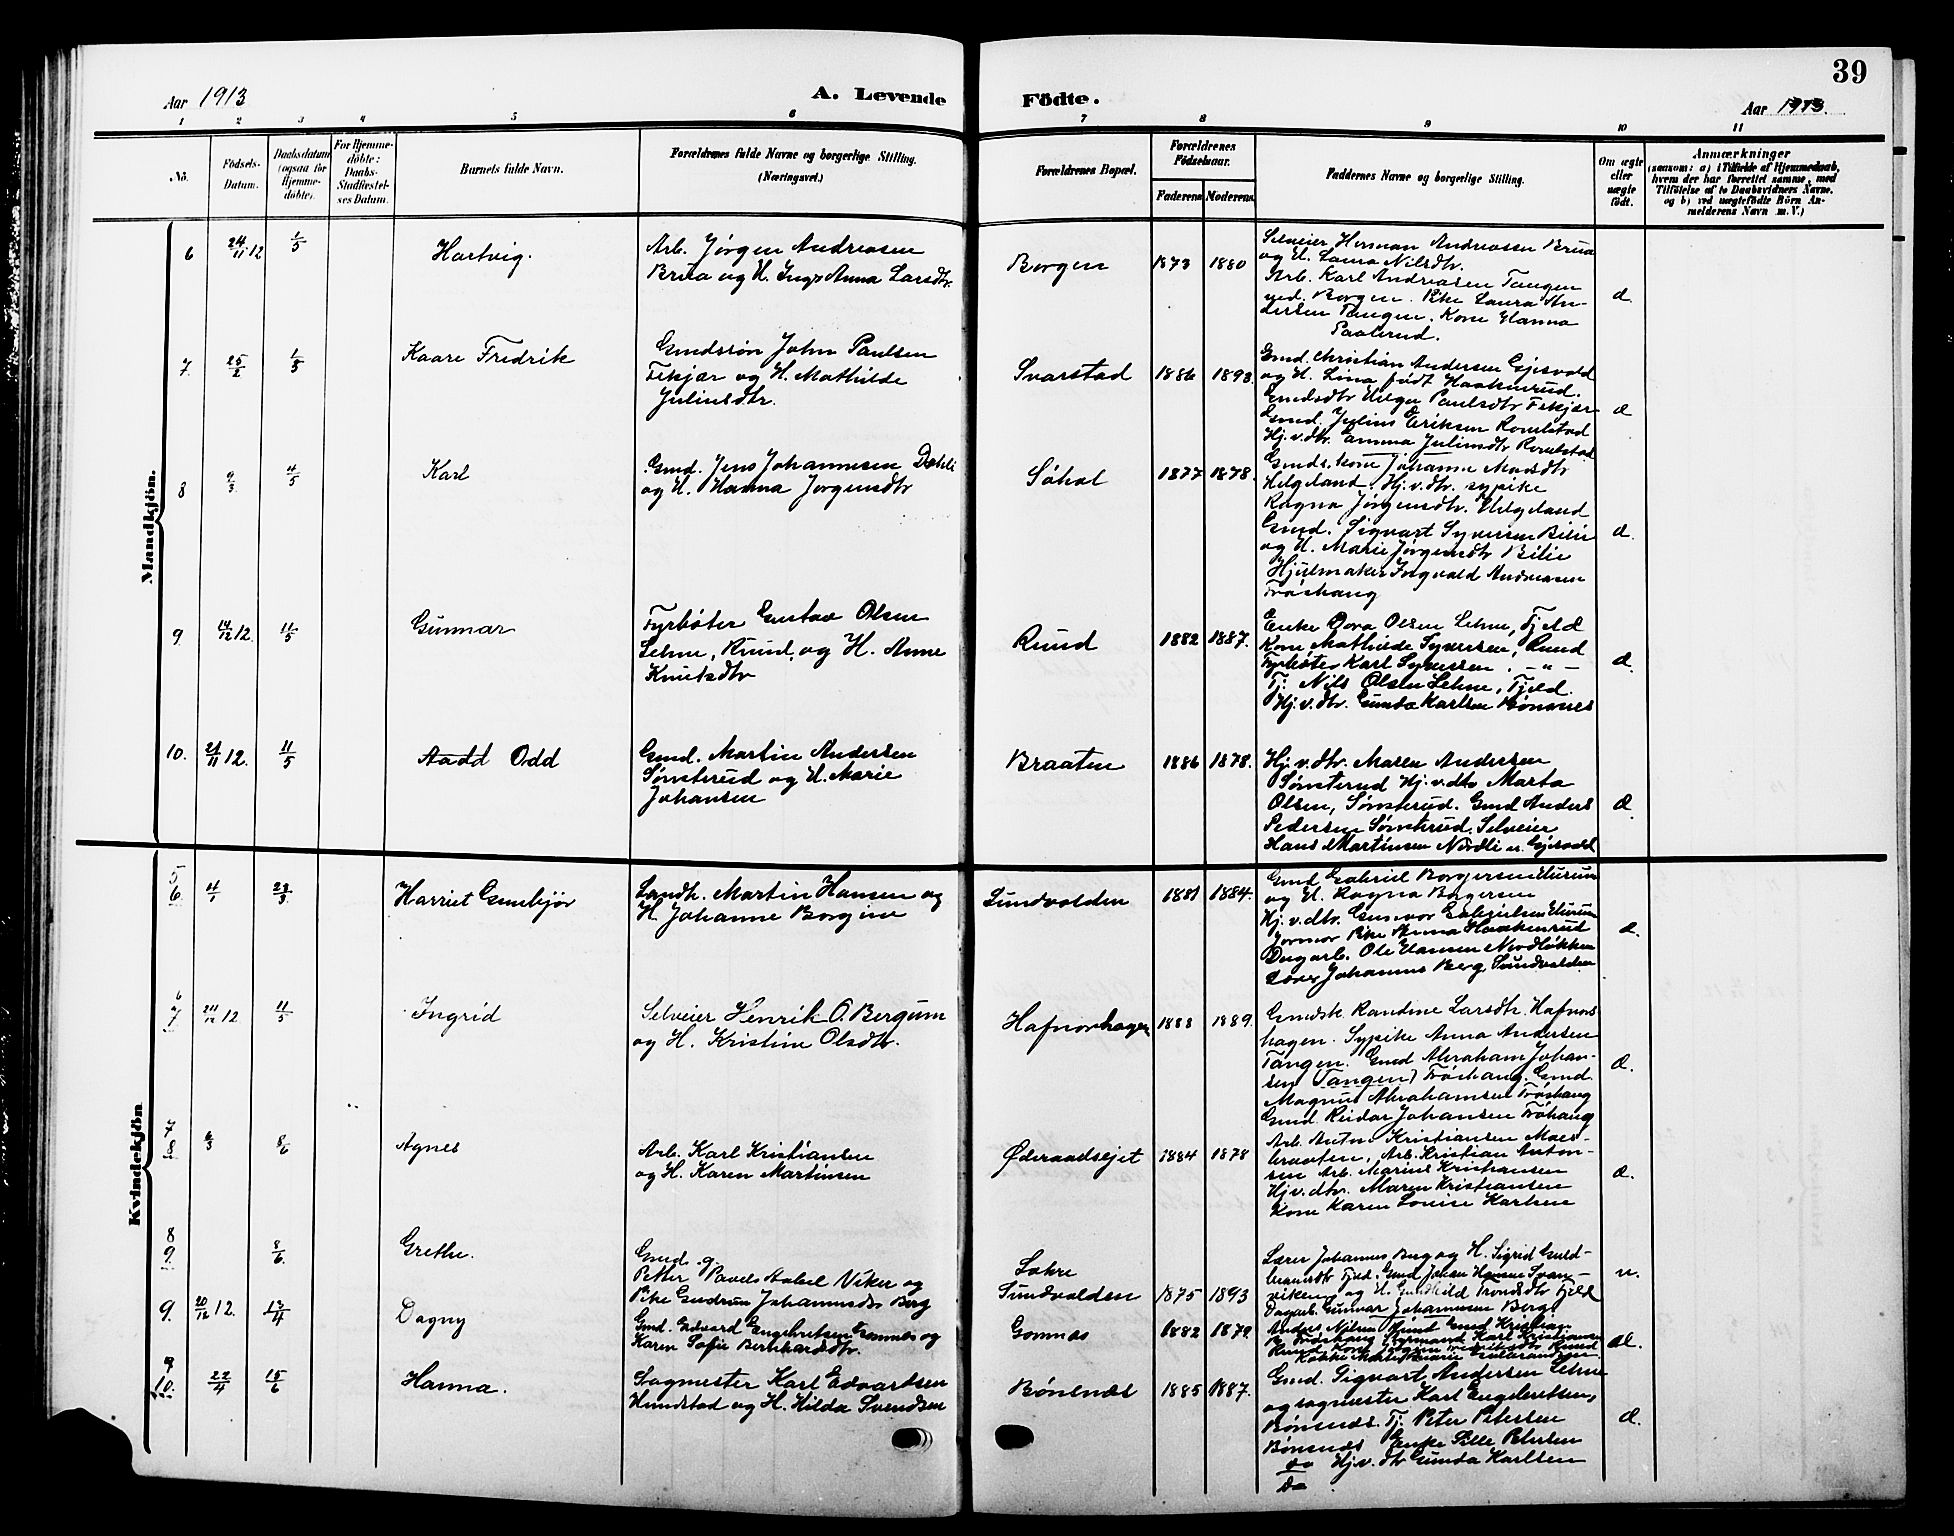 39
Aar 1913
A. Levende
Födte.
Aar 1913.
1 2 3 4 5 6 7 8 9 10 11
No.
Födsels-
Datum.
Daabsdatum
(ogsaa for
Hjemme-
döbte).
For Hjemme-
döbte:
Daabs-
Stadfæstel-
ses Datum.
Barnets fulde Navn.
Forældrenes fulde Navne og borgerlige Stilling.
(Næringsvei.)
Forældrenes Bopæl.
Forældrenes
Födselsaar.
Faderens Moderens
Faddernes Navne og borgerlige Stilling.
Om ægte
eller
uægte
födt.
Anmærkninger
(saasom: a) i Tilfælde af Hjemmedaab,
hvem der har forrettet samme, med
Tilföielse af to Daabsvidners Navne.
og b) ved uægtefödte Börn An-
melderens Navn m. V.)
Mandkjön.
6 24/11 12 1/5 Hartvig.
Arb. Jørgen Andreasen
Brua og H. Inga Anna Larsdtr.
Borgen 1873 1880
Selveier Herman Andreassen Brua
og H. Laura Nilsdtr.
Arb. Karl Andreasen Tangen
ved. Borgen. Pike Laura An-
dersen Tangen. Kone Hanna
Paalsrud.
æ.
7 25/2 1/5 Kaare Fredrik
Gmdssøn John Paulsen
Fekjær og H. Mathilde
Juliusdtr.
Svarstad 1886 1893.
Gmd. Christian Andersen Gjesvold
og H. Lina født Haakenrud.
Gmdsdtr Helga Paulsdtr Fekjær
Gmd. Julius Eriksen
Hj.v.dtr. Emma Juliusdtr
æ
8 9/3 4/5 Karl
Gmd. Jens Johannesen Dæhli
og H. Hanna Jørgensdtr
Søhol 1877 1878.
Gmds. kone Johanne Marsdtr
Helgeland. Hj.v.dtr. sypike
Ragna Jørgensdtr. Helgeland
Gmd. Sigvart Syversen Bilie
og H. Marie Jørgensdtr Bilie
Hjulmaker Ingvald Andreasen
Frøshaug
æ.
9 14/12 12. 11/5 Gunnar
Fyrbøter Gustav Olsen
Lehne, Ruud, og H. Anne
Knutsdtr
Ruud 1882 1887.
Enke Dora Olsen Lehne, Fjeld
Kone Mathilde Syversen, Ruud
Fyrbøter Karl Syversen. - " -
Tj. Nils Olsen Lehne, Fjeld.
Hj.v.dtr. Gunda Karlsen Bønsnes
æ.
10. 21/11 12. 11/5 Aadd Odd
Gmd. Martin Andersen
Sønsterud og H. Marie
Johansen
Braaten 1886 1878.
Hj.v.dtr. Maren Andersen
Sønsterud Hj.v.dtr Marta
Olsen, Sønsterud. Gmd Anders
Pedersen Sønsterud. Selveier
Hans Martinsen Nordli v. Gjesvold
æ.
Kvindekjön
5
6 4/1 23/3 Harriet Gunbjør
Landh. Martin Hansen og
H. Johanne Borgine
Sundvolden 1881 1884.
Gmd Gabriel Borgersen Elsrum
og H. Ragna Borgersen
Hj.v.dtr. Gunvor Gabrielsen Elsrum
Jormor Pike Anna Haakenrud
Dagarb. Ole Hansen Nordløkken
Lærer Johannes Berg Sundvolden
æ.
6
7 12 11/5 Ingrid
Selveier Henrik O. Bergum
og H. Kristine Olsdtr.
Hafnorhagen 1883 1889.
Gmdsk. Randine Larsdtr. Hafnors
hagen. Sypike Anna Andersen
Tangen. Gmd Abraham Johan-
sen (Tangen) Frøshaug. Gmd.
Magnus Abrahamsen Frøshaug
Gmd. Reidar Johansen Frøhaug
æ.
7
8 6/3 8/6 Agnes
Arb. Karl Kristiansen
og H. Karen Martinsen
Øderaadsejet 1884 1878
Arb. Anton Kristiansen Moes-
braaten, Arb. Kristian Anton-
sen Arb. Marius Kristiansen
Hj.v.dtr. Maren Kristiansen
Kone Karen Lovise Karlsen
æ.
8
9. 8/6 Grethe.
Gmd. g.
Petter Pavels Aabel Viker og
Pike Gudrun Johannesdtr Berg
Lohre
Sundvolden 1875 1893
Lærer Johannes Berg og H. Sigrid Guld-
brandsdtr Fjeld. Gmd Johan Hansen Svan-
viken og H. Gunhild Trondsdtr Fjeld
Dagarb. Gunnar Johannesen Berg.
u.
9. 20/12 12. 13/4 Dagny
Gmd. Edvard Engebretsen Gomnes og
Karen Sofie Bernhardsdtr.
Gomnes 1882 1879.
Anders Nilsen Ruud Gmd Kristian
Frøshaug Styrmand Karl Kristiansen
Ruud Kone Jørgine Fredriksdtr Ruud
æ.
9
10. 22/4 15/6 Hanna.
Sagmester Karl Edvartsen
Hundstad og H. Hilda Svendsen
Bønsnæs 1885 1887.
Gmd. Sigvart Andersen Lehne
og sagmester Karl Engebretsen,
Bønsnæs. Tj. Peter Petersen
Bønsnæs Enke Sille Petersen
do Hj.v.dtr Gunda Karlsen
do
æ.